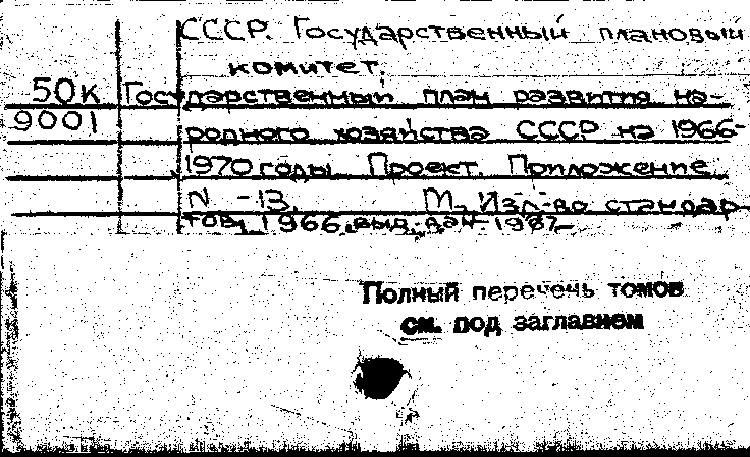 СССР. Государственный плановый
комитет.
50к Государственный план развития на-
9001 родного хозяйства СССР на 1966-
1970 годы. Проект. Приложение
N -13. М., Изд-во стандар-
тов, 1966.
Полный перечень томов
см. под заглавием